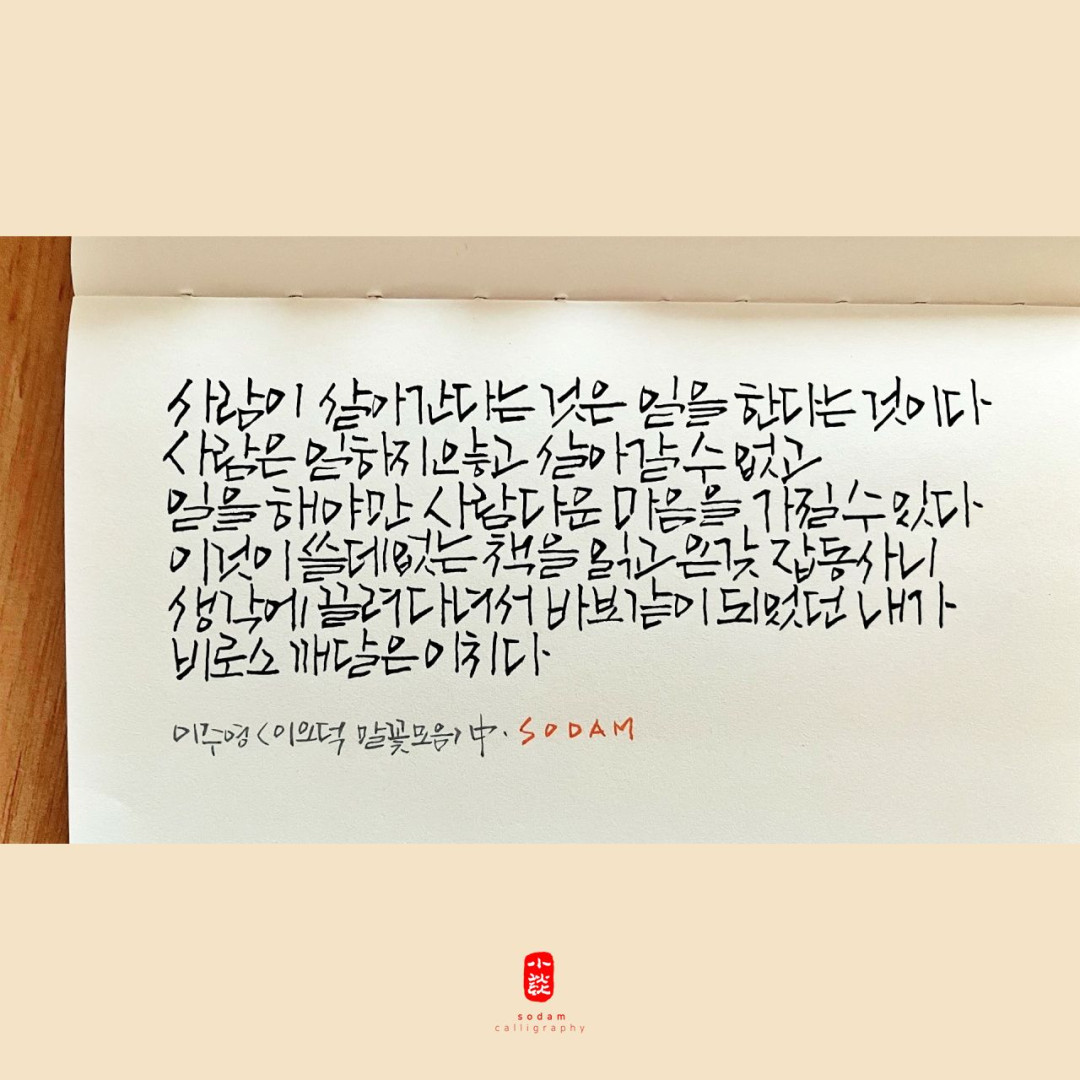 사람이 살아간다는 것은 일을 한다는 것이다
사람은 일하지 않고 살아갈 수 없고
일을 해야만 사람다운 마음을 가질 수 있다
이것이 쓸데없는 책을 읽고 온갖 잡동사니
생각에 끌려다녀서 바보같이 되었던 내가
비로소 깨달은 이치다
이주영 <이오덕 말꽃모음> 中. SODAM
小談
sodam
calligraphy